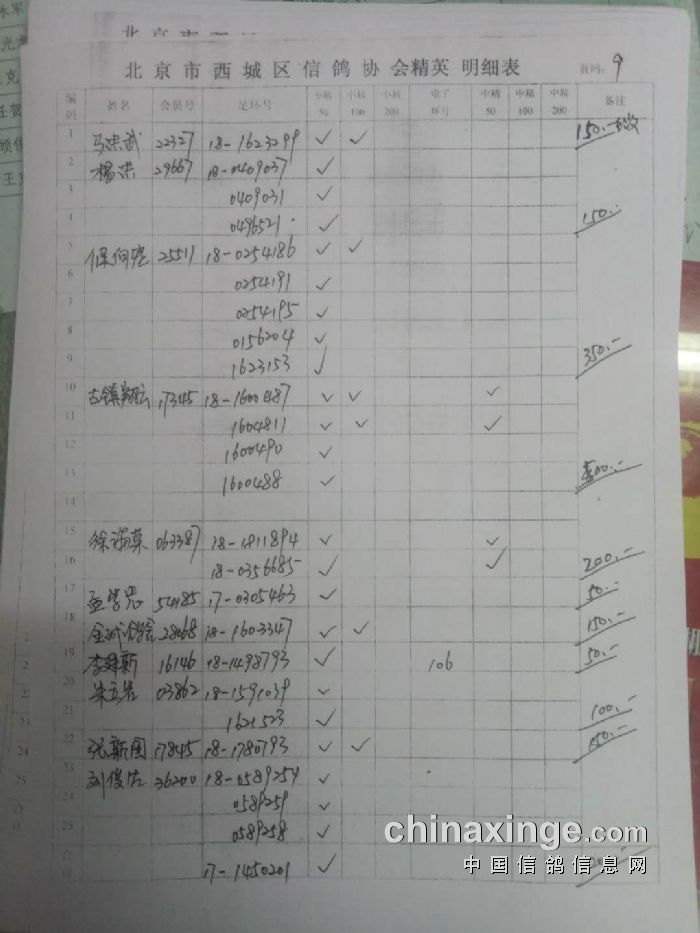 北京市
北京市西城区信鸽协会精英 明细表 页码: 9
编码 姓名 会员号 足环号 小精50 小精100 小精200 电子环号 中精50 中精100 中精200 备注
1 马洪武 22327 18-1623299 ✓ ✓ 150.-
2 杨洪 29667 18-0409037 ✓
3 0409031 ✓
4 0496521 ✓ 150.-
5 保向亮 25511 18-0254186 ✓ ✓
6 0254191 ✓
7 0254195 ✓
8 0156204 ✓
9 1623153 ✓ 350.-
10 古镇翔云 17345 18-1600487 ✓ ✓ ✓
11 1604811 ✓ ✓ ✓
12 1600490 ✓
13 1600488 ✓ 500.-
14
15 063387 18-1811894 ✓ ✓
16 18-0356685 ✓ ✓ 200.-
17 孟学忠 54185 17-0305463 ✓ 50.-
18 金诚鸽舍 28068 18-1603347 ✓ ✓ 150.-
19 李建新 16146 18-1498793 ✓ 106 50.-
20 03862 18-1591039 ✓
21 1621523 ✓ 100.-
22 张新国 17845 18-1780793 ✓ ✓ 150.-
23 刘俊杰 36200 18-0589254 ✓
24 0589259 ✓
25 0589258 ✓
合 17-1450201 ✓
chinaxinge.com
中国信鸽信息网